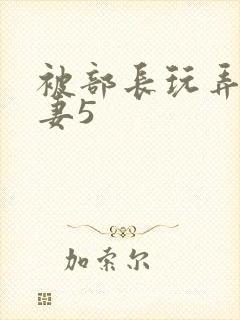 被部長玩弄
妻5
加索尔